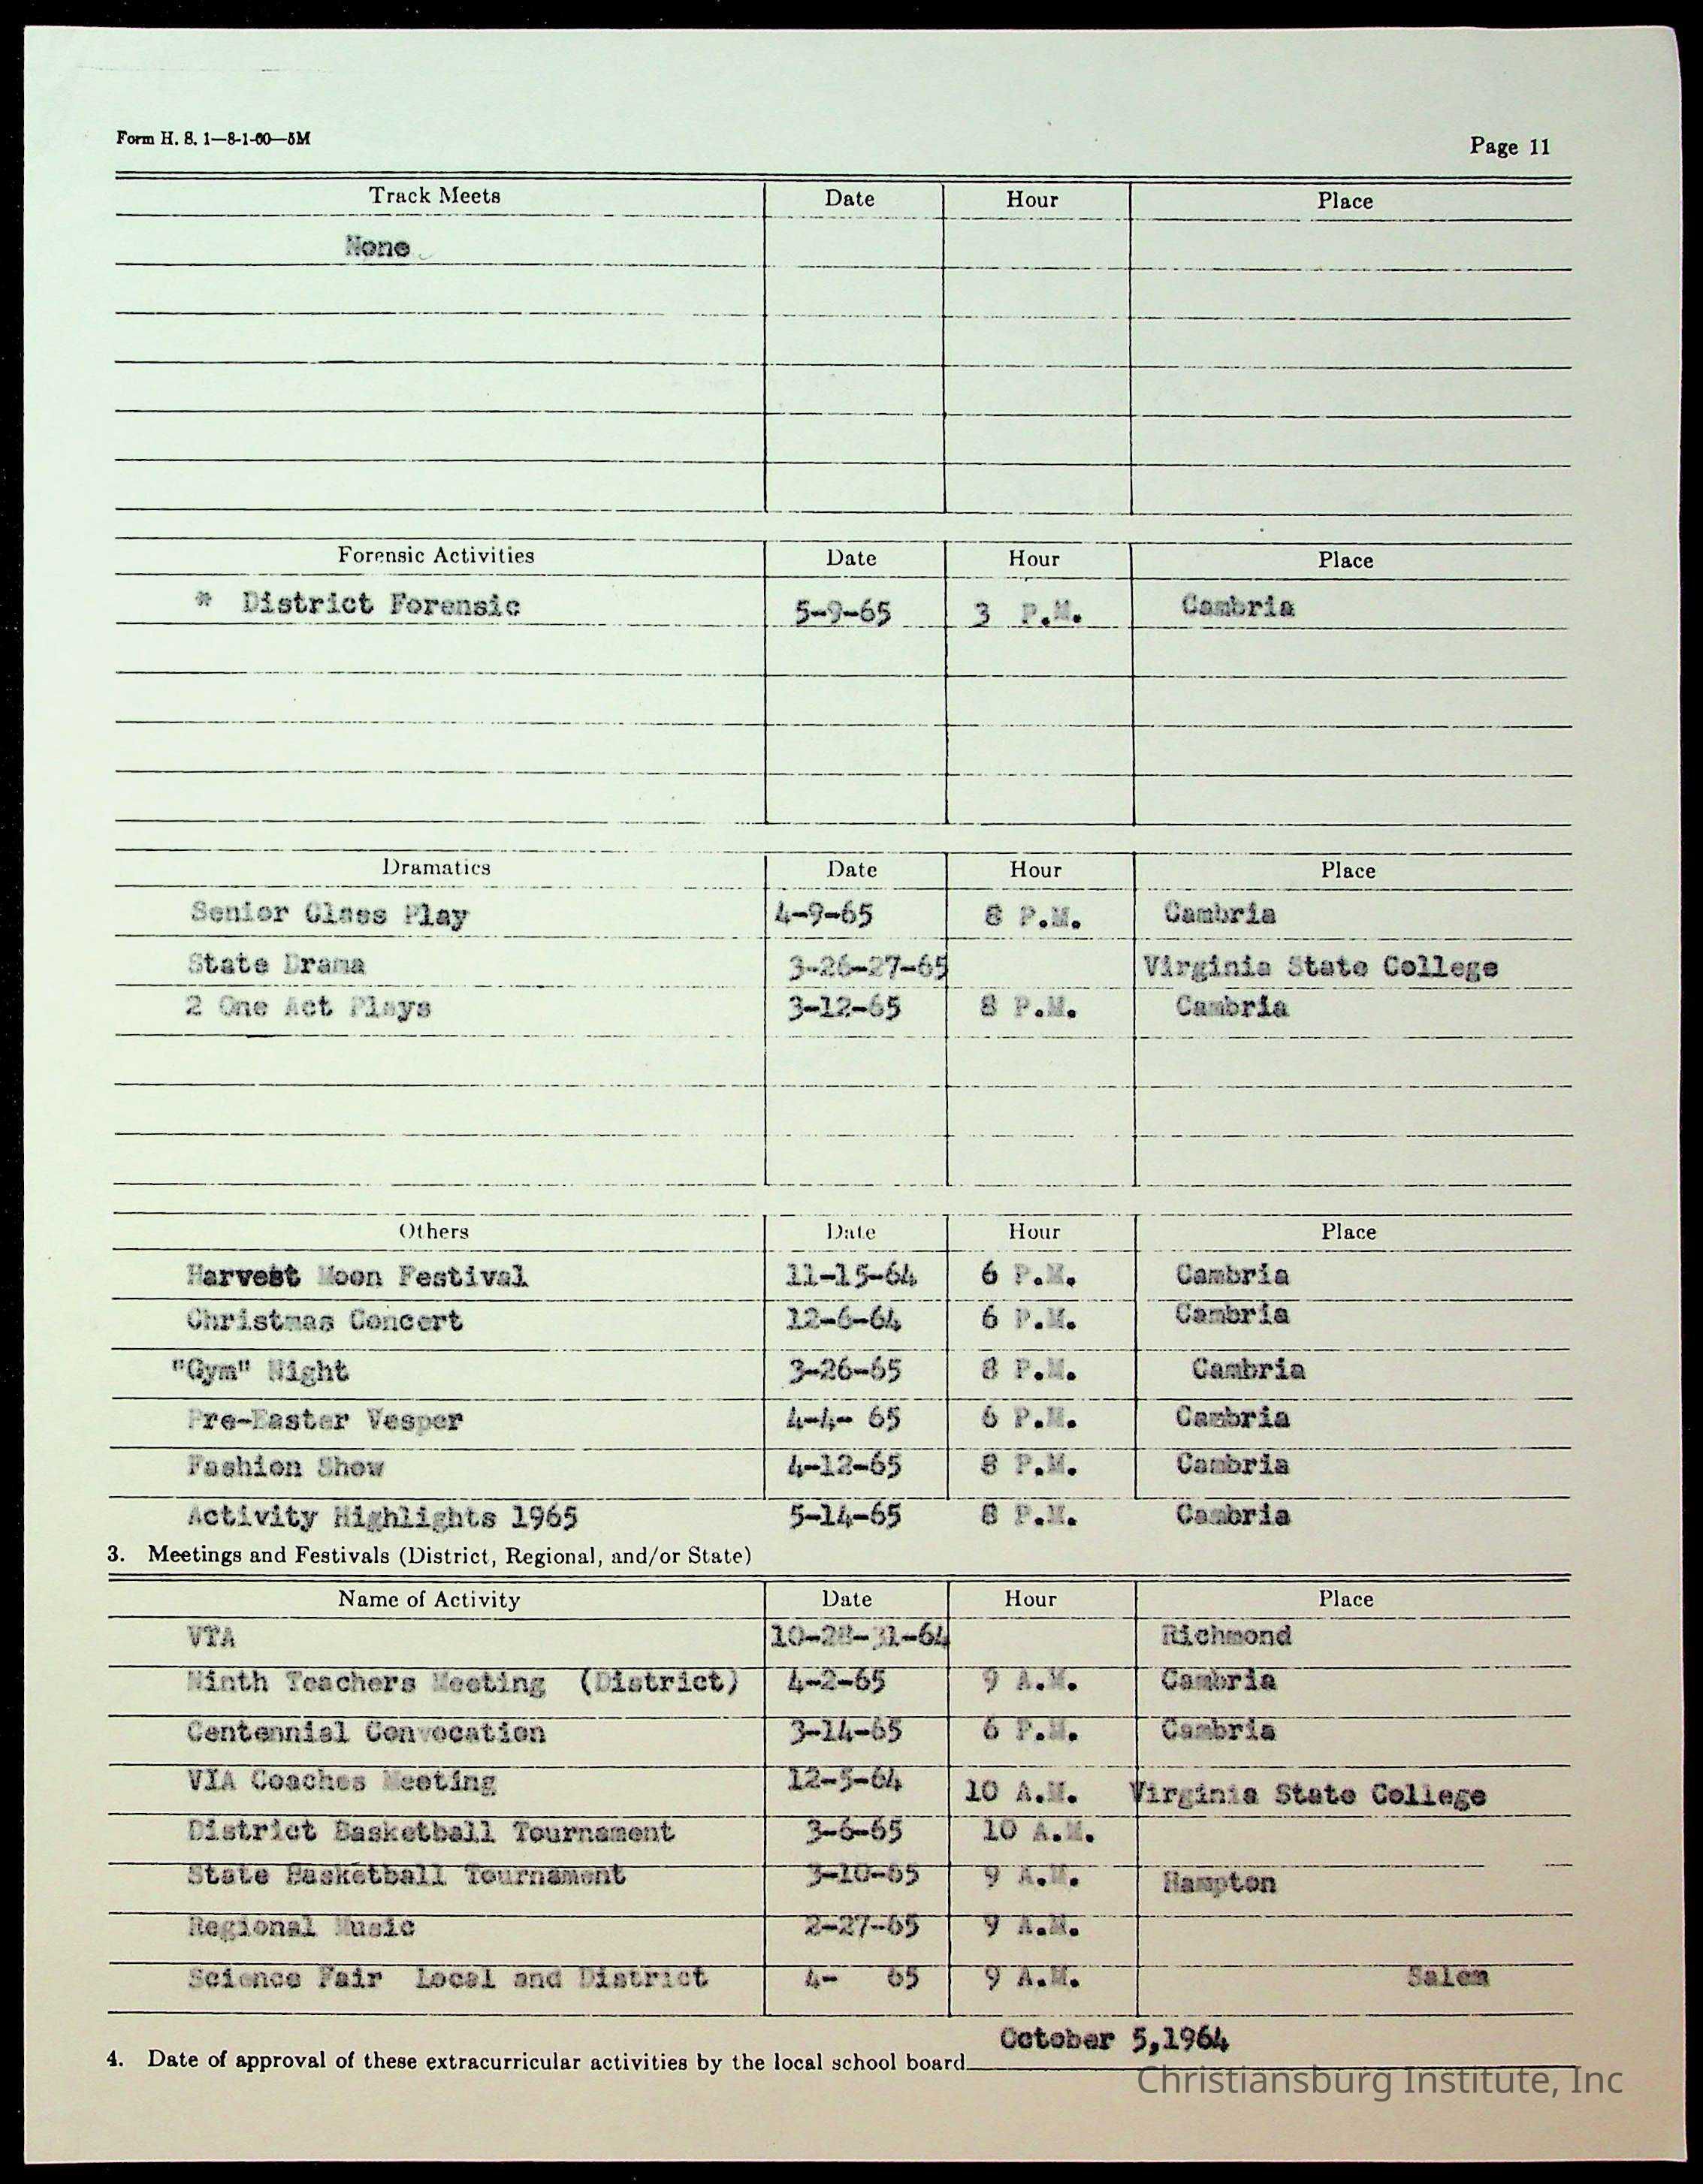 Form H. S. 1—8-1-60—5M Page 11
Track Meets Date Hour Place
None
Forensic Activities Date Hour Place
* District Forensic 5-9-65 3 P.M. Cambria
Dramatics Date Hour Place
Senior Class Play 4-9-65 8 P.M. Cambria
State Drama 3-26-27-65 Virginia State College
2 One Act Plays 3-12-65 8 P.M. Cambria
Others Date Hour Place
Harvest Moon Festival 11-15-64 6 P.M. Cambria
Christmas Concert 12-6-64 6 P.M. Cambria
"Gym" Night 3-26-65 8 P.M. Cambria
Pre-Easter Vesper 4-4- 65 6 P.M. Cambria
Fashion Show 4-12-65 8 P.M. Cambria
Activity Highlights 1965 5-14-65 8 P.M. Cambria
3. Meetings and Festivals (District, Regional, and/or State)
Name of Activity Date Hour Place
VTA 10-28-31-64 Richmond
Ninth Teachers Meeting (District) 4-2-65 9 A.M. Cambria
Centennial Convocation 3-14-65 6 P.M. Cambria
VIA Coaches Meeting 12-5-64 10 A.M. Virginia State College
District Basketball Tournament 3-6-65 10 A.M.
State Basketball Tournament 3-10-65 9 A.M. Hampton
Regional Music 2-27-65 9 A.M.
Science Fair Local and District 4- 65 9 A.M. Salem
4. Date of approval of these extracurricular activities by the local school board October 5,1964
Christiansburg Institute, Inc